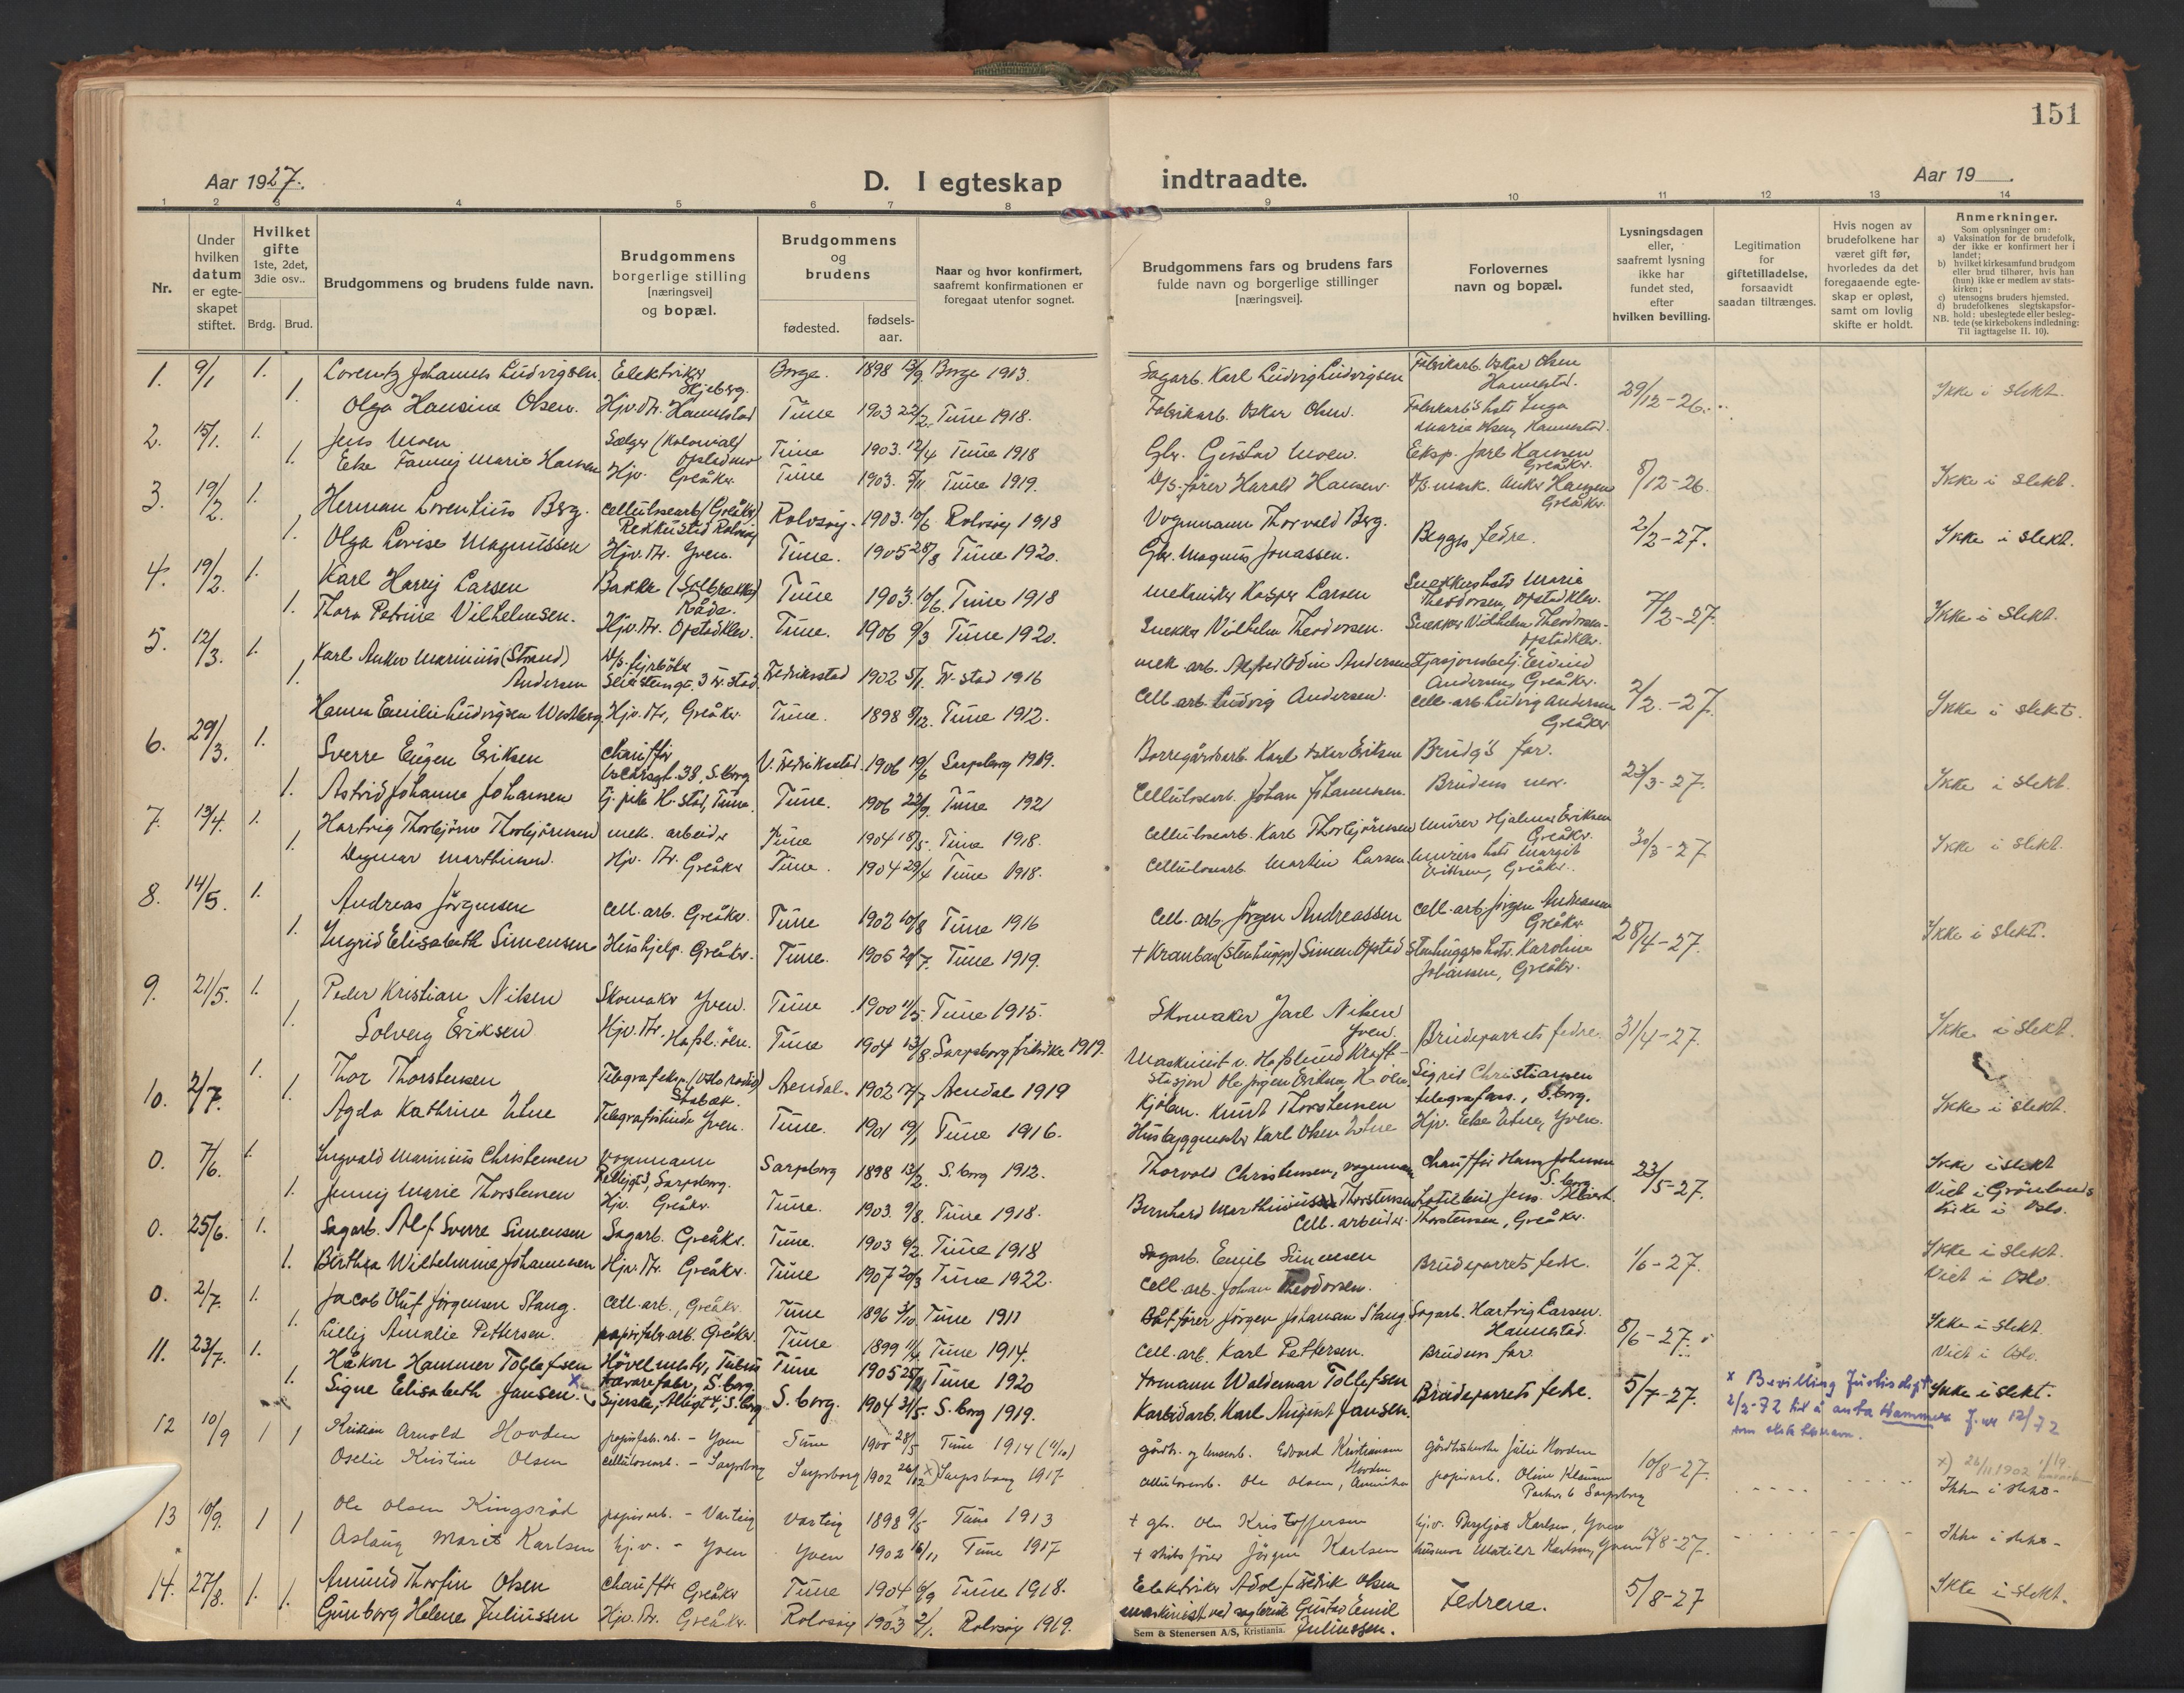 151
Aar 1927.
D. I egteskap indtraadte.
Aar 19
1 2 3 4 5 6 7 8 9 10 11 12 13 14
Nr.
Under hvilken datum er egteskapet stiftet.
Hvilket gifte 1ste, 2det, 3die osv..
Brdg. Brud.
Brudgommens og brudens fulde navn.
Brudgommens borgerlige stilling [næringsvei] og bopæl.
Brudgommens og brudens
fødested.
fødselsaar.
Naar og hvor konfirmert, saafremt konfirmationen er foregaat utenfor sognet.
Brudgommens fars og brudens fars fulde navn og borgerlige stillinger [næringsvei].
Forlovernes navn og bopæl.
Lysningsdagen eller, saafremt lysning ikke har fundet sted, efter hvilken bevilling.
Legitimation for giftetilladelse, forsaavidt saadan tiltrænges.
Hvis nogen av brudefolkene har været gift før, hvorledes da det foregaaende egteskap er opløst, samt om lovlig skifte er holdt.
Anmerkninger.
Som oplysninger om:
a) Vaksination for de brudefolk, der ikke er konfirmert her i landet;
b) hvilket kirkesamfund brudgom eller brud tilhører, hvis han (hun) ikke er medlem av statskirken;
c) utensogns bruders hjemsted.
d) brudefolkenes slegtskapsforhold: ubeslegtede eller beslegtede (se kirkebokens indledning: Til iagttagelse II. 10).
NB.
1. 9/1 1. Lorentz Johannes Ludvigsen Elektriker Skjeberg. Borge. 1898 13/9 Borge 1913. Sagarb. Karl Ludvig Ludvigsen Fabrikarb. Oskar Olsen Hannestad. 29/12-26. Ikke i slekt.
1. Olga Hansine Olsen. Hjv. dtr. Hannestad Tune 1903 22/2 Tune 1918. Fabrikarb. Oskar Olsen. Fabrikarb's hstr Inga Marie Olsen, Hannestad.
2. 15/1. 1. Jens Moen Sælger (Kolonial) Opstadmo Tune 1903. 12/4 Tune 1918 Gbr. Gustav Moen. Eksp. Jarl Hansen Greåker. 8/12-26. Ikke i slekt.
1. Else Fanny Marie Hansen Hjv. Greåker Tune 1903. 5/11 Tune 1919. D/S. fører Harald Hansen. D/S. mask. Anker Hansen Greåker.
3. 19/2. 1. Herman Lorentius Berg. Cellulosearb (Greåker) Rekkustad Rolvsøy Rolvsøy. 1903. 10/6 Rolvsøy 1918 Vognmann Thorvald Berg. Begges fedre. 2/2-27. Ikke i slekt.
1. Olga Lovise Magnussen Hjv. dtr. Yven. Tune. 1905 28/8 Tune 1920. Gbr. Magnus Jonassen.
4. 19/2. 1. Karl Harry Larsen Bakke (Solbrekke) Råde. Tune 1903. 10/6. Tune 1918 Mekaniker Kasper Larsen Snekkers hstr Marie Theodorsen, Opstadklev. 7/2-27. Ikke i slekt.
1. Thora Petrine Vilhelmsen. Hjv. dtr. Opstadklev. Tune. 1906 9/3 Tune 1920. Snekker Vilhelm Theodorsen. Snekker Vilhelm Theodorsen Opstadklev.
5. 12/3. 1. Karl Anker Marinius (Strand) Andersen D/s. fyrbøter 3 Fr. stad. Fredriksstad 1902 5/11. Fr-stad 1916 mek. arb. Alfred Odin Andersen Stasjonsbetj. Eivind Andersen, Greåker. 2/2.-27. Ikke i slekt.
1. Hanna Emilie Ludvigsen Westberg. Hjv. dtr, Greåker. Tune. 1898 8/12. Tune 1912. Cell. arb. Ludvig Andersen. Cell. arb. Ludvig Andersen Greåker
6. 29/3. 1. Sverre Eugen Eriksen Chauffør Oscarsgt. 38, S.borg V. Fredriksstad. 1906 19/6 Sarpsborg 1919. Borregårdsarb. Karl Oskar Eriksen Brudg's far. 23/3-27. Ikke i slekt.
1. Astrid Johanne Johansen Tj. pike H.stad, Tune. Tune. 1906 22/9. Tune 1921 Cellulosearb. Johan Johannesen. Brudens mor.
7. 13/4. 1. Hartvig Thorbjørn Thorbjørnsen mek. arbeider Tune 1904 18/5. Tune 1918. Cellulosearb. Karl Thorbjørnsen Murer Hjalmar Eriksen Greåker. 30/3-27 Ikke i slekt.
1. Dagmar Marthinsen. Hjv. dtr. Greåker Tune. 1904 29/4 Tune 1918. Cellulosearb. Martin Larsen Murers hstr Margit Eriksen, Greåker.
8. 14/5. 1. Andreas Jørgensen Cell. arb. Greåker. Tune 1902 10/8 Tune 1916 Cell. arb. Jørgen Andreassen Cell. arb. Jørgen Andreassen Greåker. 28/4-27. Ikke i slekt.
1. Ingrid Elisabeth Simensen Hushjelp. Greåker. Tune. 1905 20/7. Tune 1919. + Kranbas (Stenhugger) Simen Opstad Stenhuggers hstr. Karoline Johansen, Greåker.
9. 21/5. 1. Peder Kristian Nilsen Skomaker Yven. Tune 1900 11/5. Tune 1915. Skomaker Jarl Nilsen Yven. Brudeparrets fedre. 31/4-27. Ikke i slekt.
1. Solveig Eriksen Hjv. dtr. Hafsl. øen. Tune 1904 13/8 Sarpsborg frikirke 1919. Maskinist v. Hafslund Kraftstasjon Ole Jørgen Eriksen, H. øen
10. 2/7. 1. Thor Thorstensen Telegrafeksp. (Oslo radio) Stabæk. Arendal. 1902 17/7 Arendal 1919 Kjøbm. Knut Thorstensen Sigrid Christiansen telegrafass., S.borg. Ikke i slekt.
1. Agda Kathrine Utne Telegrafistinde Yven. Tune. 1901 19/1 Tune 1916. Husbyggmester Karl Olsen Utne Hjv. Else Utne, Yven.
0. 7/6. 1. Ingvald Marinius Christensen Vognmann Sarpsborg. Sarpsborg 1898 13/2. S.borg 1912. Thorvald Christensen, vognmann Chauffør Hans Johnsen S.borg 23/5-27. Ikke i slekt
1. Jenny Marie Thorstensen Hjv. Greåker. Tune. 1903. 9/8. Tune 1918. Bernhard Marthinius Thorstensen Cell. arbeider. Jens Albert Thorstensen, Greåker. Viet i Grønlands kirke i Oslo.
0. 25/6. 1. Sagarb. Alf Sverre Simensen Sagarb. Greåker. Tune. 1903 6/2. Tune 1918 Sagarb. Emil Simensen Brudeparrets fedre. 1/6-27. Ikke i slekt.
1. Berthea Wilhelmine Johannessen Hjv. dtr. Greåker. Tune 1907 20/3 Tune 1922. Cell. arb. Johan Theodorsen. Viet i Oslo.
0. 2/7. 1. Jacob Oluf Jørgensen Stang. Cell. arb., Greåker. Tune 1896 3/10. Tune 1911 fører Jørgen Johansen Stang Sagarb. Hartvig Larsen. Hannestad. 8/6-27. Ikke i slekt.
1. Lilly Amalie Pettersen. papirfabr.arb. Greåker. Tune 1899 11/4 Tune 1914. Cell. arb. Karl Pettersen. Brudens far. Viet i Oslo.
11. 23/7. 1. Håkon Hammer Tollefsen Høvelmester, Tune trævarefabr., S.borg. Tune 1905 25/2 Tune 1920 Formann Waldemar Tollefsen Brudeparrets fedre. 5/7-27. x Bevilling Justisdept 2/2-72 til å anta Hammer J.nr 12/72 som Ikke i slekt.
1. Signe Elisabeth Jansen. x Syerske, S.borg S.borg. 1904 31/5. S.borg 1919. Karbidarb. Karl August Jansen.
12 10/9 1 1 Kristian Arnold Hovden papirfab. arb. - Yven Tune 1900 28/5 Tune 1914 (4/10) gårdbr. og Edvard Kristiansen Hovden Gårdbrukerske Julie Hovden 10/8-27. x) 26/11 1902
Oselie Kristine Olsen cellulosearb. - Sarpsborg Sarpsborg 1902 26/12 x) Sarpsborg 1917 cellulosearb. Ole Olsen, Amerika papirarb. Oline Klausen Sarpsborg Ikke i slekt-
13 10/9. 1 1 Ole Olsen Kingsrød papirarb. - Varteig Varteig 1898 9/5 Tune 1913 + gbr. Ole Kristoffersen hj.v. Bergljot Karlsen, Yven 13/8-27. Ikke i slekt-
Aslaug Marit Karlsen hj.v. - Yven Yven 1902 16/11 Tune 1917 + skibsfører Jørgen Karlsen husmor Matilde Karlsen, Yven
14. 27/8. 1. 1. Amund Thorfin Olsen Chauffør Greåker Tune 1904 6/9 Tune 1918. Elektriker Adolf Fredrik Olsen Fedrene. 5/8-27 Ikke i slekt.
Gunborg Helene Juliussen Hjv. dtr. Greåker. Rolvsøy 1903 2/1. Rolvsøy 1919. maskinist ved Gustav Emil Juliussen.
Sem & Stenersen A/S, Kristiania.